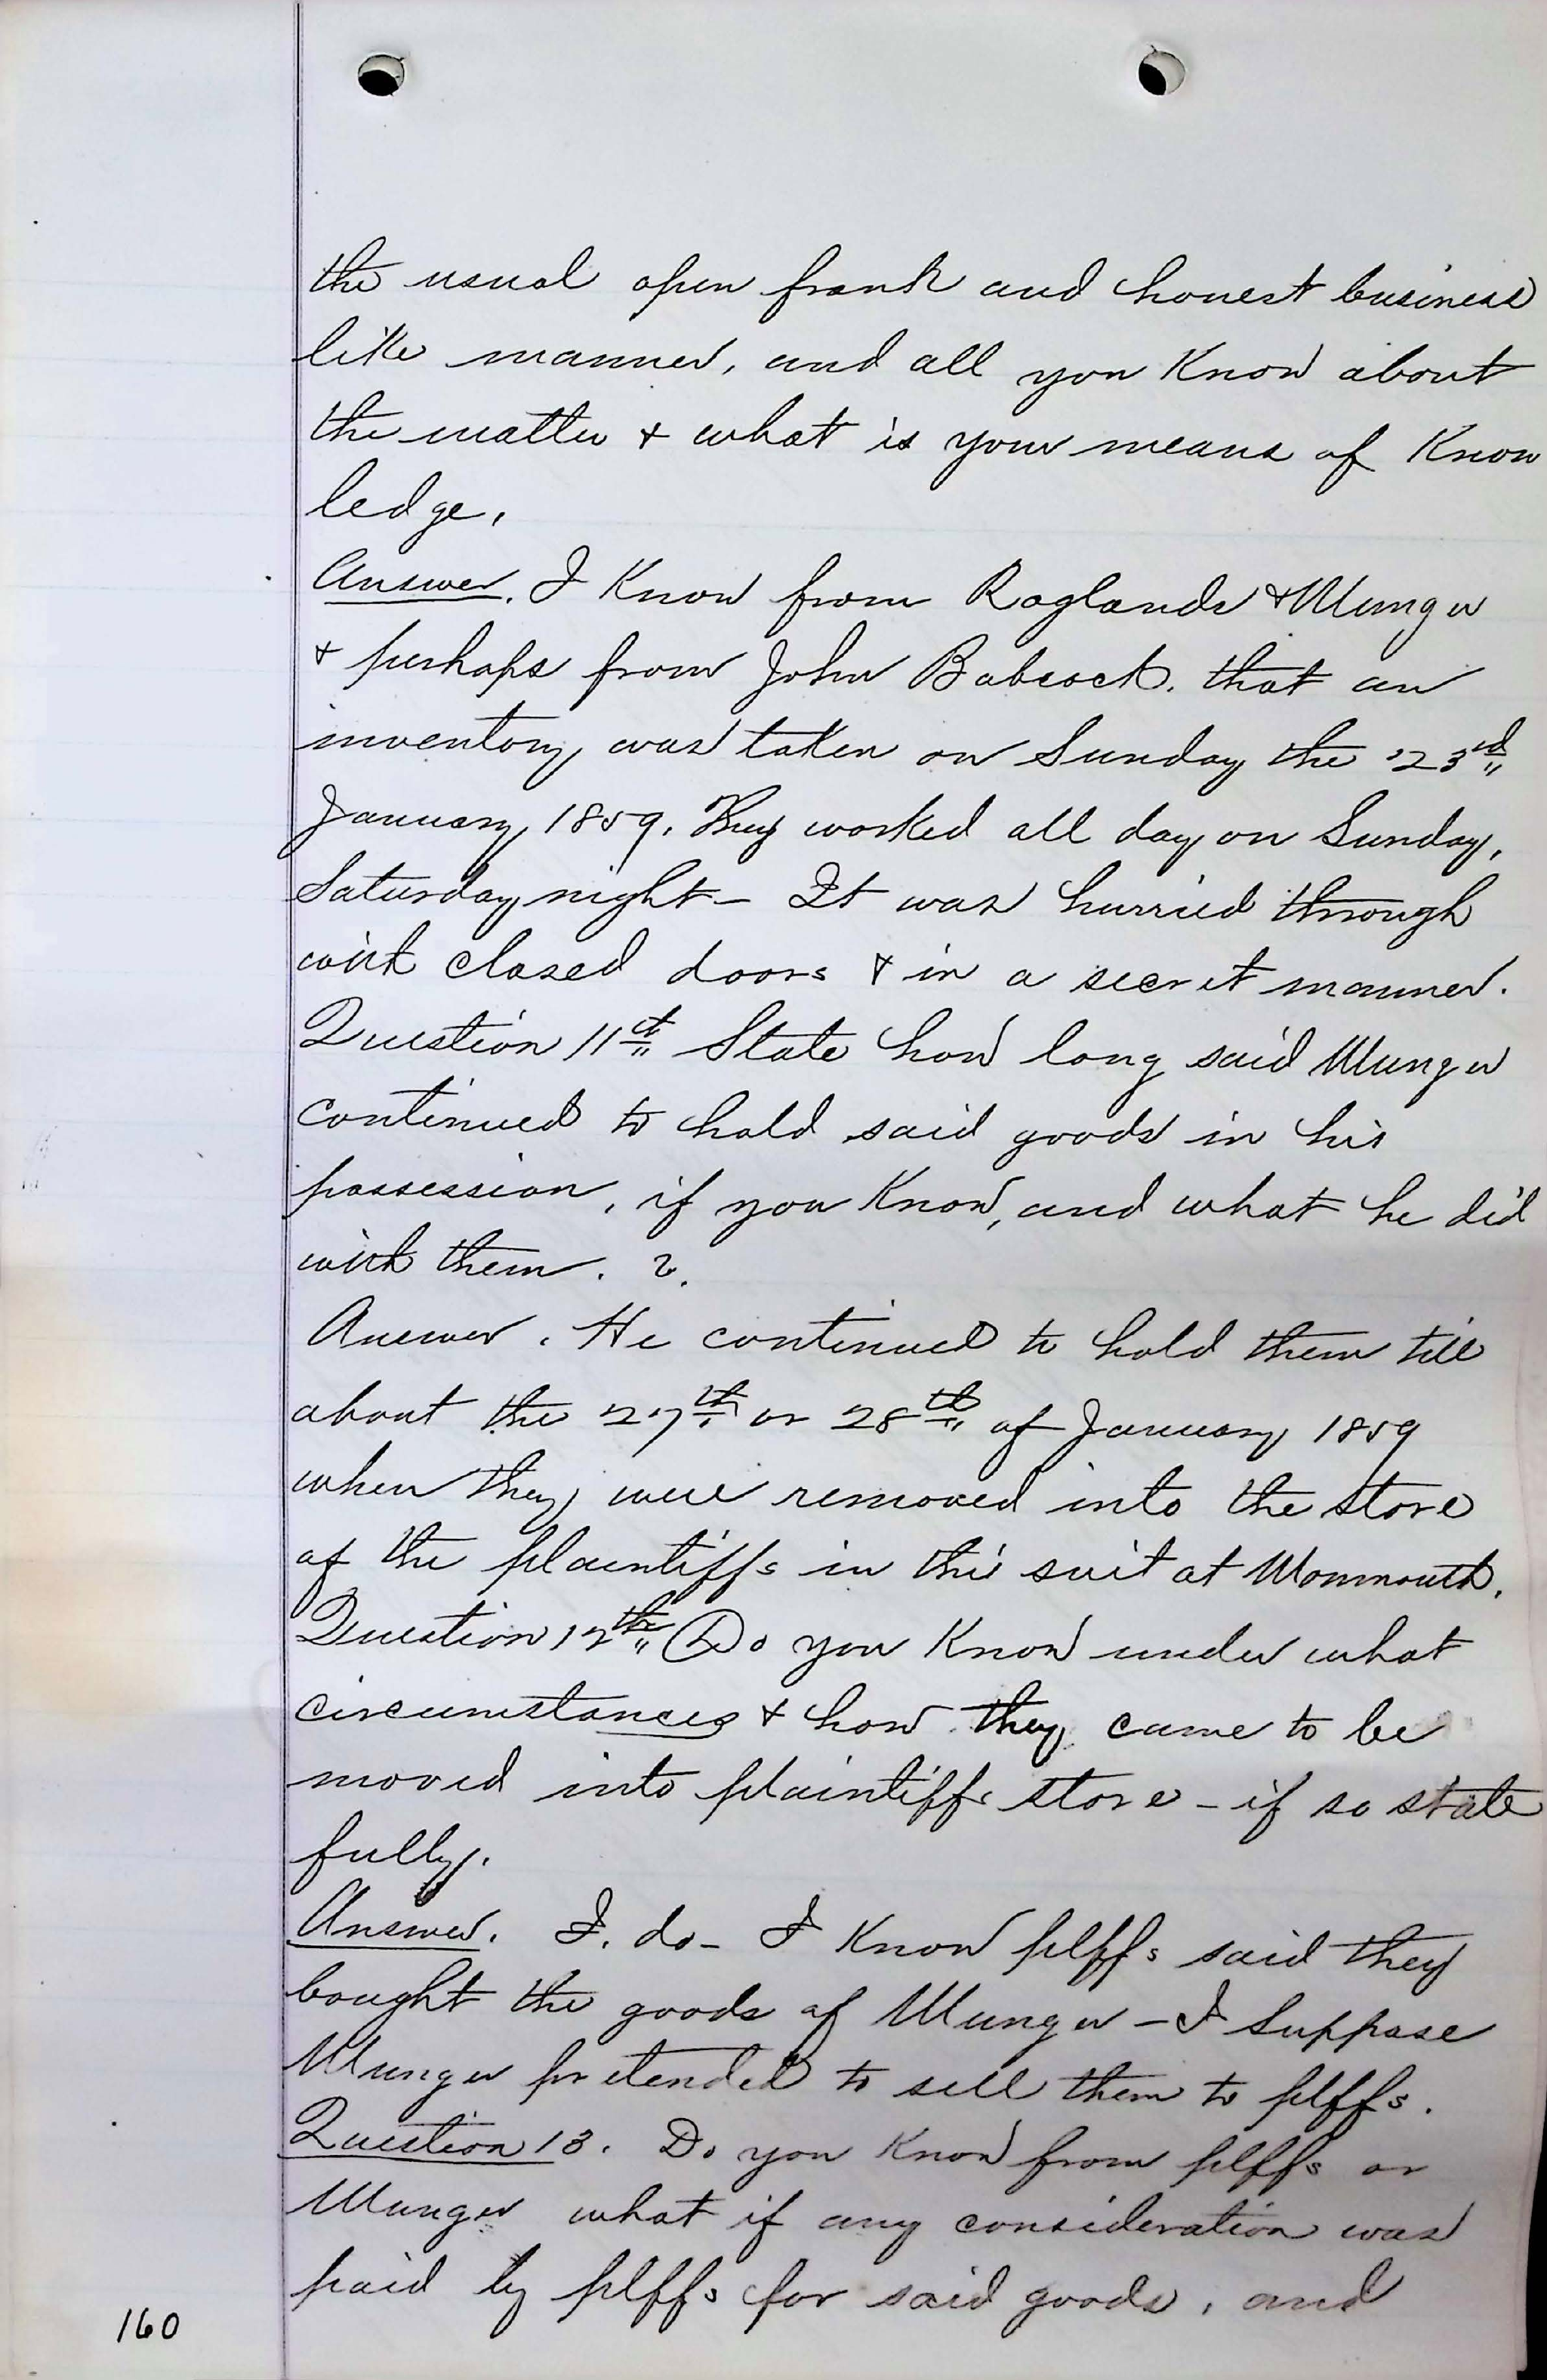 the usual open frank and honest business
like manner, and all you Know about
the matter & what is your means of Know
ledge.
Answer. I Know from Raglands & Munger
& perhaps from John Babcock. that an
inventory was taken on Sunday the 23rd
January 1859. They worked all day on Sunday,
Saturday night - It was hurried through
with closed doors & in a secret manner.
Question 11th State how long said Munger
continued to hold said goods in his
possession, if you Know, and what he did
with them. ?.
Answer. He continued to hold them till
about the 27th or 28th of January 1859
when they were removed into the store
of the plaintiffs in this suit at Monmouth.
Question 12th Do you Know under what
circumstances & how they came to be
moved into plaintiffs store - if so state
fully.
Answer. I. do - I Know plffs said they
bought the goods of Munger - I suppose
Munger pretended to sell them to plffs.
Question 13. Do you Know from plffs or
Munger what if any consideration was
paid by plffs for said goods, and
160